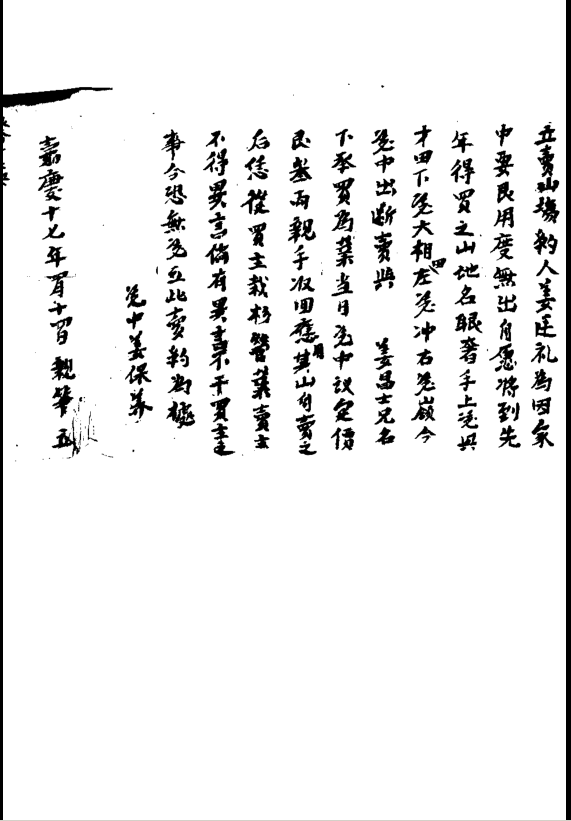 立賣山塲約人姜廷礼為因家
中要艮用度無出自愿将到先
年得買之山地名眼奢手上凴與
才田下凴大相左凴冲右凴嶺四今
凴中出断賣與 姜昌士兄名
下承買為業当日凴中議定價
艮叁両親手收回應用其山自賣之
后恁從買主栽杉管業賣主
不得異言倘有異言不干買主之
事今恐無凴立此賣約為據
凴中姜保养
嘉慶十七年 月十四日 親筆 立